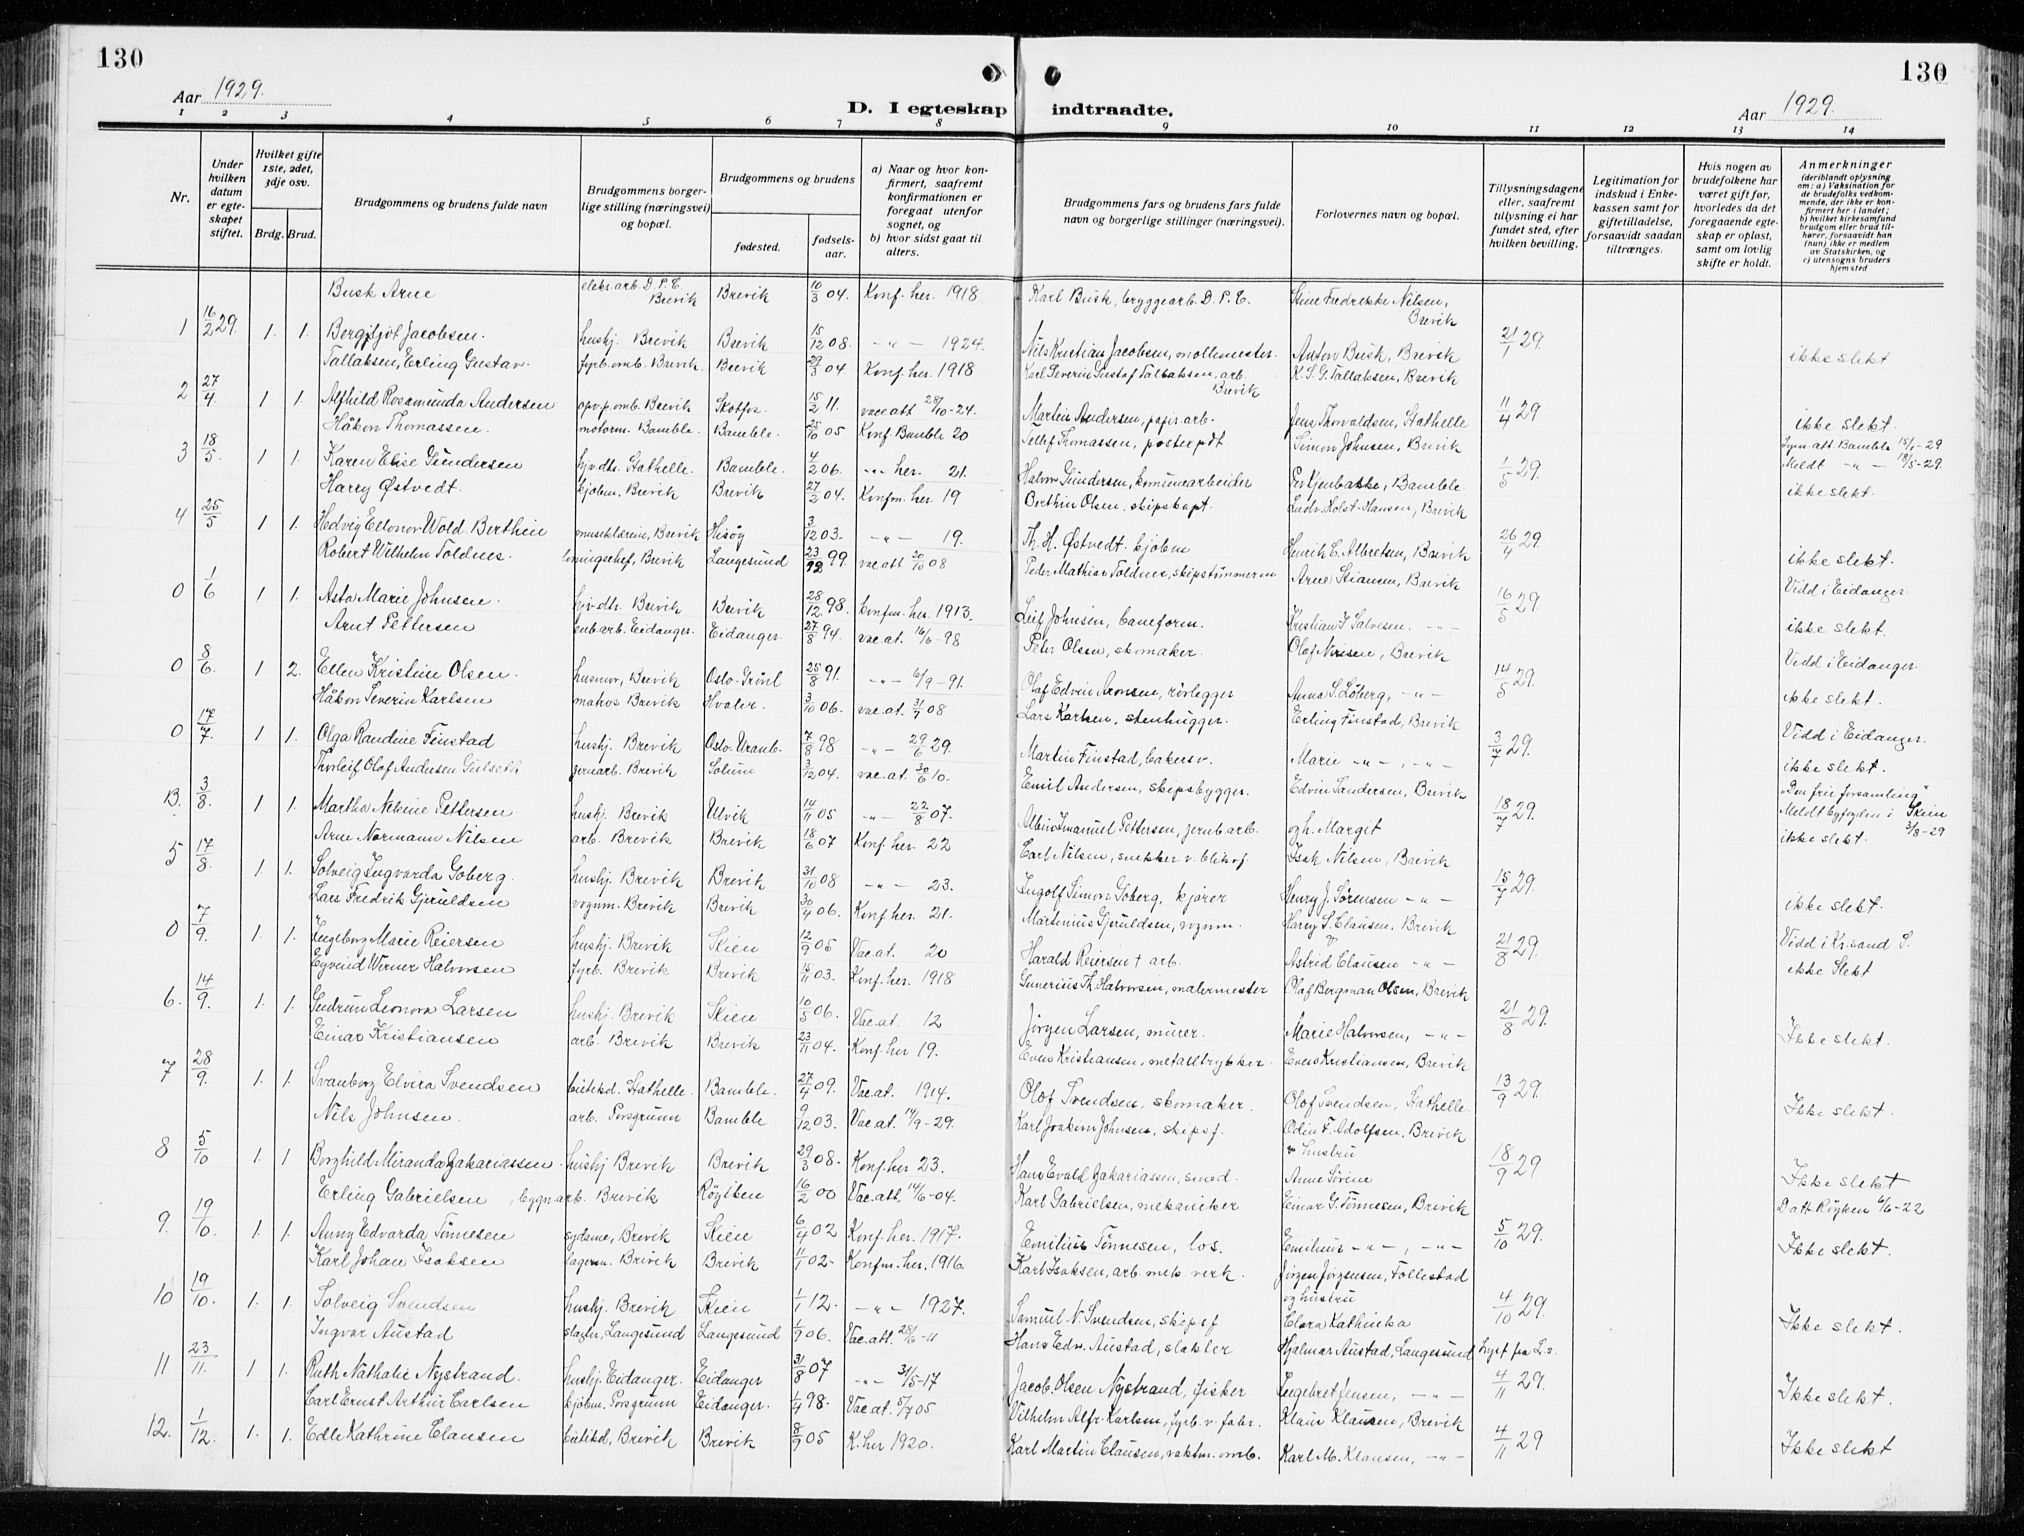 130
130
Aar 1929.
D. I egteskap indtraadte.
Aar 1929.
1 2 3 4 5 6 7 8 9 10 11 12 13 14
Nr.
Under hvilken datum er egteskapet stiftet.
Hvilket gifte 1ste, 2det, 3dje osv.
Brdg. Brud.
Brudgommens og brudens fulde navn
Brudgommens borgerlige stilling (næringsvei) og bopæl.
Brudgommens og brudens
fødested.
fødselsaar.
a) Naar og hvor konfirmert, saafremt konfirmationen er foregaat utenfor sognet, og
b) hvor sidst gaat til alters.
Brudgommens fars og brudens fars fulde navn og borgerlige stillinger (næringsvei).
Forlovernes navn og bopæl.
Tillysningsdagene eller, saafremt tillysning ei har fundet sted, efter hvilken bevilling.
Legitimation for indskud i Enkekassen samt for giftetilladelse, forsaavidt saadan tiltrænges.
Hvis nogen av brudefolkene har været gift før, hvorledes da det foregaaende egteskap er opløst, samt om lovlig skifte er holdt.
Anmerkninger
(deriblandt oplysning om: a) Vaksination for de brudefolks vedkommende, der ikke er konfirmert her i landet; b) hvilket kirkesamfund brudgom eller brud tilhører, forsaavidt han (hun) ikke er medlem av Statskirken, og c) utensogns bruders hjemsted
Busk Arne elektr.arb. D.P.C. Brevik Brevik 10/3 04. Konf. her. 1918 Karl Busk, bryggearb. D.P.C. Stine Fredrikke Nilsen, Brevik
1 16/2 29. 1. 1. Bergljot Jacobsen. hushj. Brevik Brevik 15/12 08. -"- 1924. Nils Kristian Jacobsen, mollemester. Anton Busk, Brevik 21/1 29. ikke slekt
Tallaksen, Erling Gustav. fyrb.omb. Brevik. Brevik 29/3 04 Konf. her. 1918 Karl Severin Gustaf Tallaksen, arb. Brevik K.S.G. Tallaksen, Brevik
2 27/4 1 1 Alfhild Rosamunda Andersen opv.p.omb. Brevik Skotfos. 15/2 11. vac.att 28/10-24. Martin Andersen, papir.arb. Jens Thorvaldsen, Stathelle 11/4 29 ikke slekt.
Håkon Thomassen. motorm. Bamble. Bamble. 25/10 05 Konf. Bamble 20 Tellef Thomassen, Simon Johnsen, Brevik
3 18/5. 1 1. Karen Elise Gundersen hjv.dtr. Stathelle. Bamble. 4/2 06. -"- her. 21. Halvor Gundersen, komunearbeider Bamble 1/5 29. Meldt -"- 18/5-29. ikke slekt.
Harry Østvedt. kjøbm, Brevik Brevik 27/2 04. Konfm. her. 19 Berthin Olsen, skipskapt. Ludv. Holst-Hansen, Brevik
4 25/5 1 1. Hedvig Ellonor Wold Berthin Brevik Hisøy 3/12 03. -"- 19. Th. H. Østvedt. kjøbm Henrik C. Albretsen, Brevik 26/4 29. ikke slekt.
Robert Wilhelm Toldnes. Brevik Langesund 23/12 99. vac.att 20/10 08 Peder Mathias Toldnes, skipstømmerm Arne Stiansen, Brevik
0 1/6 1 1. Asta Marie Johnsen. hjv.dtr. Brevik Brevik 28/12 98. Confm. her. 1913. Leif Johnsen, baneform. Kristian S Salvesen. -"- 16/5 29. Vidd i Eidanger. ikke slekt.
Arnt Pettersen Eidanger. Eidanger. 27/8 94. vac.at. 16/6-98 Peter Olsen, skomaker. Olaf Nirisen, Brevik
0 8/6. 1 2. Ellen Kristine Olsen. husmor, Brevik Oslo-Grønl 25/8 91. -"- 6/9-91. Olaf Edvin Aronsen, rørlegger Anna S. Løberg, -"- 14/5 29. Vidd i Eidanger. ikke slekt.
Håkon Severin Karlsen matros Brevik Hvaler. 3/10 06. vac.at. 31/7 08 Lars Karlsen, stenhugger. Erling Finstad, Brevik
0 17/7. 1 1. Olga Randine Finstad hushj. Brevik Oslo. Uranb. 7/8 98 -"- 29/6 29. Martin Finstad, bakersv. Marie -"-, -"- 3/7 29. Vidd i Eidanger. ikke slekt.
Thorleif Olaf Andersen Gulseth jernarb. Brevik Solum 3/12 04. vac.at. 30/6 10. Emil Andersen, skipsbygger. Edvin Sandersen, Brevik
B. 3/8. 1 1. Martha Nekine Pettersen hushj. Brevik Ulvik 14/11 05 -"- 22/8 07. Albin Imanuel Pettersen, jernb.arb. og h. Margit 18/7 29. "Den frie forsamling" Meldt byfogden i Skien 3/8-29 ikke slekt.
Arne Normann Nilsen arb. Brevik Brevik 18/6 07 Konf. her. 22 Carl Nilsen, snekker v. blikvf. Isak Nilsen, Brevik
5 17/8. 1 1. Solveig Ingvarda Goberg. hushj. Brevik Brevik 31/10 08 -"- 23. Ingolf Simon Goberg, kjører Henry J. Sørensen -"- 15/7 29. ikke slekt.
Lars Fredrik Gjeruldsen vognm. Brevik Brevik 30/4 06. Konf her. 21. Martinius Gjeruldsen, vognm. Harry S. Clausen. Brevik
0 7/9. 1. 1. Ingeborg Marie Reiersen hushj. Brevik Skien 12/9 05 Vac.at. 20 Harald Reiersen † arb. Astrid Clausen -"- 21/8 29. Vidd i Kr.sand S. ikke slekt
Eyvind Werner Halvorsen fyrb. Brevik Brevik 15/11 03. Konf. her. 1918 Gunerius Th. Halvorsen, malermester Olaf Bergman Olsen, Brevik
6. 14/9. 1. 1. Gudrun Leonora Larsen hushj. Brevik Skien 10/5 06. Vac.at. 12 Jørgen Larsen, murer. Marie Halvorsen, -"- 21/8 29. Ikke slekt.
Einar Kristiansen arb. Brevik Brevik 23/11 04. Konf. her 19. Even Kristiansen, metalltrykker. Even Kristiansen, Brevik
7 28/9. 1. 1. Svanborg Elvira Svendsen Stathelle. Bamble. 27/4 09. Vac.at. 1914. Olof Svendsen, skomaker. Olof Svendsen, Stathelle. 13/9 29. Ikke slekt.
Nils Johnsen. arb. Porsgrunn Bamble 9/12 03. Vac.at. 14/9-29. Karl Joakim Johnsen, skipsf. Odin F. Adolfsen. Brevik
8 5/10 1. 1 Borghild Miranda Zakariassen. hushj Brevik Brevik 29/3 08. Konf. her 23. Hans Evald Zakariassen, smed. og hustru Anne Sørine 18/9 29 Ikke slekt
Erling Gabrielsen, bygn.arb. Brevik Røyken 16/2 00 Vac.att. 14/6-04. Karl Gabrielsen, mekaniker Einar G. Tønnesen, Brevik
9. 19/10. 1. 1. Anny Edvarda Tønnesen sydame, Brevik Skien 6/4 02 Konf. her. 1917. Emilius Tønnesen, los. Emilius -"-, -"- 5/10 29. D. att Røyken 6/6-22 Ikke slekt.
Karl Johan Isaksen lagerm. Brevik Brevik 11/1 02- Konfm. her. 1916. Karl Isaksen, arb. mek verk. Jørgen Jørgensen, Follestad
10 19/10. 1. 1. Solveig Svendsen hushj. Brevik Skien 1/1 12. -"- 1927. Samuel N. Svendsen, skipsf og hustru Clara Kathinka 4/10 29. Ikke slekt.
Ingvar Austad slagter, Langesund Langesund 1/9 06. Vac.att. 28/6-11 Hans Edv. Austad, slakter Hjalmar Austad, Langesund Lyst fra Ls.
11 23/11. 1 1. Ruth Nathalie Nystrand. hushj. Eidanger. Eidanger 31/8 07 -"- 31/5-17 Jacob. Olsen Nystrand, fisker Ingebret Jensen, -"- 4/11 29. Ikke slekt.
Carl Ernst Arthur Carlsen kjøbm. Porsgrunn Eidanger. 1/4 98. Vac.at. 5/7 05 Vilhelm Alfr. Karlsen, fyrb. v. fabr. Klaus Klausen, Brevik
12. 1/12. 1. 1. Edle Kathrine Clausen Brevik Brevik 8/9 05 K. her 1920. Karl Martin Clausen, vaktm. omb. Karl M. Klausen, -"- 4/11 29 Ikke slekt